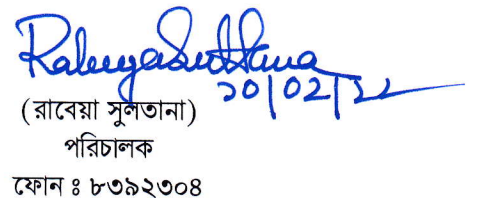 Rabeya Sultana
২০/০২/২২
(রাবেয়া সুলতানা)
পরিচালক
ফোন ঃ ৮৩৯২৩০৪